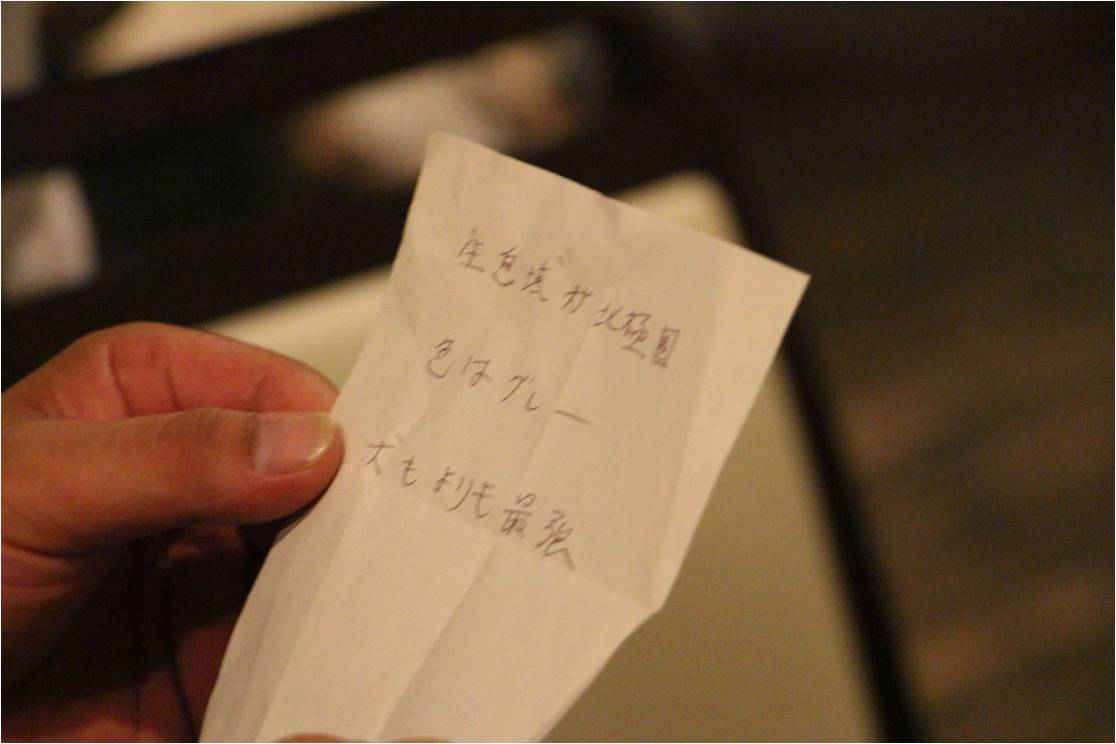 生息域が北極圏
色はグレー
犬もよりも最強